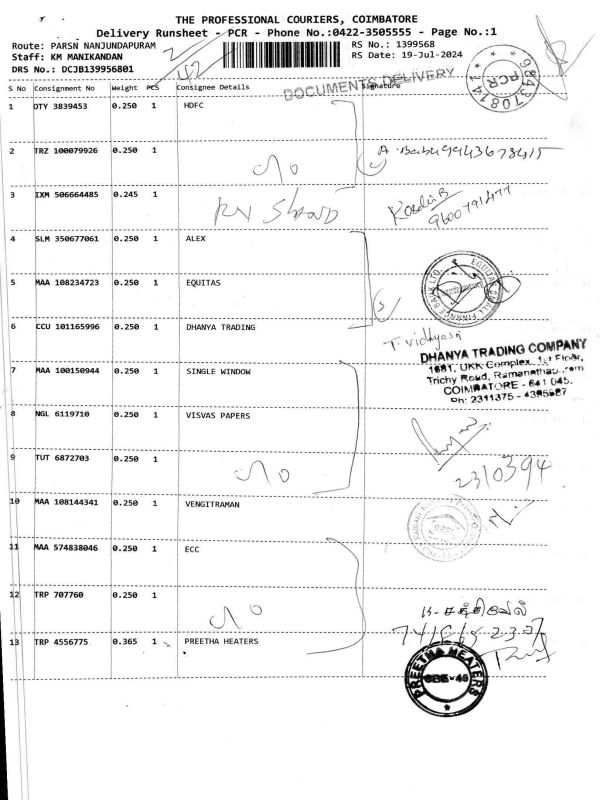 THE PROFESSIONAL COURIERS, COIMBATORE
Delivery Runsheet - PCR - Phone No.:0422-3505555 - Page No.:1
Route: PARSN NANJUNDAPURAM
RS No.: 1399568
Staff: KM MANIKANDAN
RS Date: 19-Jul-2024
DRS No.: DCJB139956801
42
DOCUMENTS DELIVERY
PCR
S No Consignment No Weight PCS Consignee Details Signature
1 OTY 3839453 0.250 1 HDFC
2 TRZ 100079926 0.250 1
A. Babu 9943678415
3 IXM 506664485 0.245 1
9600791477
4 SLM 350677061 0.250 1 ALEX
5 MAA 108234723 0.250 1 EQUITAS
6 CCU 101165996 0.250 1 DHANYA TRADING
T. Vidhyasri
DHANYA TRADING COMPANY
1681, UKK Complex, 1st Floor,
Trichy Road, Ramanathapuram
COIMBATORE - 641 045.
Ph: 2311375 - 4395687
7 MAA 100150944 0.250 1 SINGLE WINDOW
8 NGL 6119710 0.250 1 VISVAS PAPERS
9 TUT 6872703 0.250 1
2310394
10 MAA 108144341 0.250 1 VENGITRAMAN
11 MAA 574838046 0.250 1 ECC
12 TRP 707760 0.250 1
13 TRP 4556775 0.365 1 PREETHA HEATERS
PREETHA HEATERS
CBE-45